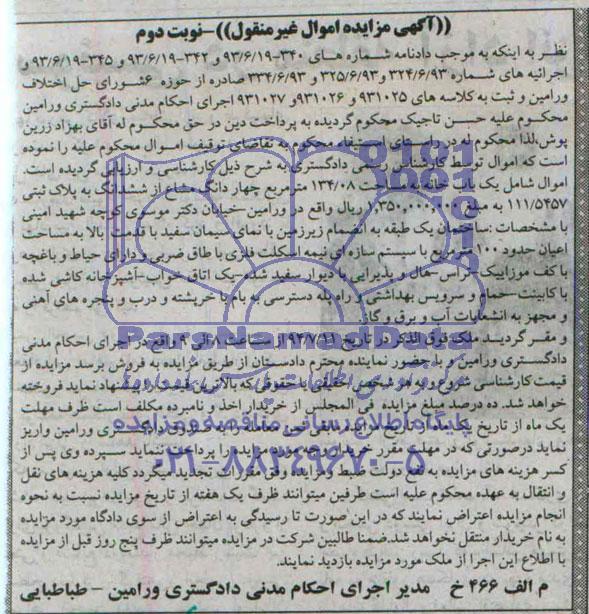 ((آگهی مزایده اموال غیرمنقول))-نوبت دوم
نظر به اینکه به موجب دادنامه شماره های ۳۴۰-۹۳/۶/۱۹ و ۳۴۲-۹۳/۶/۱۹ و ۳۴۵-۹۳/۶/۱۹ و
اجرائیه های شماره ۳۲۴/۶/۹۳ و ۳۲۵/۶/۹۳ و ۳۳۴/۶/۹۳ صادره از حوزه ۶شورای حل اختلاف
ورامین و ثبت به کلاسه های ۹۳۱۰۲۵ و ۹۳۱۰۲۶ و ۹۳۱۰۲۷ اجرای احکام مدنی دادگستری ورامین
محکوم علیه حسن تاجیک محکوم گردیده به پرداخت دین در حق محکوم له آقای بهزاد زرین
پوش،لذا محکوم له در راستای استیفاء محکوم به تقاضای توقیف اموال محکوم علیه را نموده
است که اموال توسط کارشناس رسمی دادگستری به شرح ذیل کارشناسی و ارزیابی گردیده است.
اموال شامل یک باب خانه به مساحت ۱۳۴/۰۸ مترمربع چهار دانگ مشاع از ششدانگ به پلاک ثبتی
۱۱۱/۵۴۵۷ به مبلغ ریال واقع در ورامین-خیابان دکتر موسوی کوچه شهید امینی
با مشخصات :ساختمان یک طبقه به انضمام زیرزمین با نمای سیمان سفید با قدمت بالا به مساحت
اعیان حدود ۱۰۰ مترمربع با سیستم سازه ای نیمه اسکلت فلزی با طاق ضربی و دارای حیاط و باغچه
با کف موزاییک-تراس-هال و پذیرایی با دیوار سفید شده-یک اتاق خواب-آشپزخانه کاشی شده
با کابینت-حمام و سرویس بهداشتی و راه پله دسترسی به بام با خرپشته و درب و پنجره های آهنی
و مجهز به انشعابات آب و برق و گاز.
و مقرر گردید ملک فوق الذکر در تاریخ ۹۳/۷/۱۲ از ساعت ۸ الی ۹ واقع در اجرای احکام مدنی
دادگستری ورامین و با حضور نماینده محترم دادستان از طریق مزایده به فروش برسد مزایده از
قیمت کارشناسی شروع و به هر شخص حقیقی یا حقوقی که بالاترین قیمت را پیشنهاد نماید فروخته
خواهد شد. ده درصد مبلغ مزایده فی المجلس از خریدار اخذ و نامبرده مکلف است ظرف مهلت
یک ماه از تاریخ دادگستری ورامین واریز
نماید درصورتی که در مهلت مقرر خریدار وجه مورد مزایده را پرداخت ننماید سپرده وی پس از
کسر هزینه های مزایده به نفع دولت ضبط ومزایده وفق مقررات تجدید میگردد کلیه هزینه های نقل
و انتقال به عهده محکوم علیه است طرفین میتوانند ظرف یک هفته از تاریخ مزایده نسبت به نحوه
انجام مزایده اعتراض نمایند که در این صورت تا رسیدگی به اعتراض از سوی دادگاه مورد مزایده
به نام خریدار منتقل نخواهد شد.ضمنا طالبین شرکت در مزایده میتوانند ظرف پنج روز قبل از مزایده
با اطلاع این اجرا از ملک مورد مزایده بازدید نمایند.
م الف ۴۶۶ خ مدیر اجرای احکام مدنی دادگستری ورامین - طباطبایی
ParsNamadData
پایگاه اطلاع رسانی مناقصه و مزایده
۰۲۱-۸۸۳۴۹۶۷۰-۵